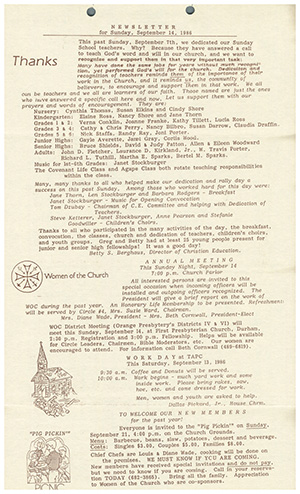 NEWSLETTER
for Sunday, September 14, 1986
Thanks
This past Sunday, September 7th, we dedicated our Sunday
School teachers. Why? Because they have answered a call
to teach God's word and will in our church, and we want to
recognize and support them in that very important task!
Many have done the same job for years without much recogni-
tion, yet performed God's will for the church. Dedication and
recognition of teachers reminds them of the importance of their
work in the Church, and it reminds us, the community of
believers, to encourage and support them in that work. We all
can be teachers and we all are learners of our faith. Those named are just the ones
who have answered a specific call here and now. Let us support them with our
prayers and words of encouragement. They are:
Nursery: Dollie Thomas, Susan Elkins and Cindy Shore
Kindergarten: Elaine Boas, Nancy Shore and Jane Thorn
Grades 1 & 2: Verna Conklin, Joanne Franks, Kathy Tillett, Lucia Ross
Grades 3 & 4: Cathy & Chris Perry, Nancy Bilbro, Susan Darrow, Claudia Draffin.
Grades 5 & 6: Nick Stalls, Randy Ray, Joel Porter.
Junior Highs: Angela Averett, Janet Casey, Debbie Noell.
Senior Highs: Bruce Shields, David & Judy Patton, Allen & Eileen Woodward
Adults: John D. Fletcher, Laurence D. Kirkland, Jr., W. Travis Porter,
Richard L. Tuthill, Martha E. Sparks, Bertel M. Sparks.
Music for 1st-6th Grades: Janet Stockburger
The Covenant Life Class and Agape Class both rotate teaching responsibilities
within the class.
Many, many thanks to all who helped make our dedication and rally day a
success on this past Sunday. Among those who worked hard for this day were:
Jane Thorn, Len Stockburger and Burbara Rodgers - Breakfast
Janet Stockburger - Music for Opening Convocation
Tom Dzubay - Chairman of C.E. Committee and helping with Dedication of
Teachers.
Steve Ketterer, Janet Stockburger, Anne Pearson and Stefanie
Goodwiller - Children's Choirs.
Thanks to all who participated in the many activities of the day, the breakfast,
convocation, the classes, church and dedication of teachers, children's choirs,
and youth groups. Greg and Betty had at least 25 young people present for
junior and senior high fellowships! It was a good day!
Betty S. Berghaus, Director of Christian Education.
ANNUAL MEETING
This Sunday Night, September 14
7:00 p.m. Church Parlor
Women of the Church
All interested persons are invited to this
special occasion when incoming officers will be
installed and outgoing officers recognized. The
President will give a brief report on the work of
WOC during the past year. An Honorary Life Membership to be presented. Refreshments
will be served by Circle #4, Mrs. Suzie Ward, Chairman.
Mrs. Diane Wade, President - Mrs. Beth Cornwall, President-Elect
WOC District Meeting (Orange Presbytery's Districts IV & VI) will
meet this Sunday, September 14, at First Presbyterian Church, Durham.
2:30 p.m. Registration and 3:00 p.m. Fellowship. Helps will be available
for Circle Leaders, Chairmen, Bible Moderators, etc. Our women are
encouraged to attend. For information call Beth Cornwall
WORK DAY at TAPC
This Saturday, September 13, 1986
9:30 a.m. Coffee and Donuts will be served.
10:00 a.m. Work begins - each yard work and some
inside work. Please bring rakes, saw,
hoe, etc. and some dressed for work.
Men, women and youth are asked to help.
Dallas Pickard, Jr., House Chrm.
TO WELCOME OUR NEW MEMBERS
for the past year!
"PIG PICKIN"
Everyone is invited to the "Pig Pickin" on Sunday,
September 21, 4:00 p.m. on the Church Grounds.
Menu: Barbecue, beans, slaw, potatoes, dessert, and beverage.
Costs: Singles $3.00, Couples $5.00, Families $8.00.
Chief Chefs are Louis & Diane Wade, cooking will be done on
the premises. WE MUST KNOW IF YOU ARE COMING.
New members have received special invitations and do not pay,
but we need to know if you are coming. Call in your reserva-
tion TODAY Bring all the family.
Women of the Church are also co-sponsoring.